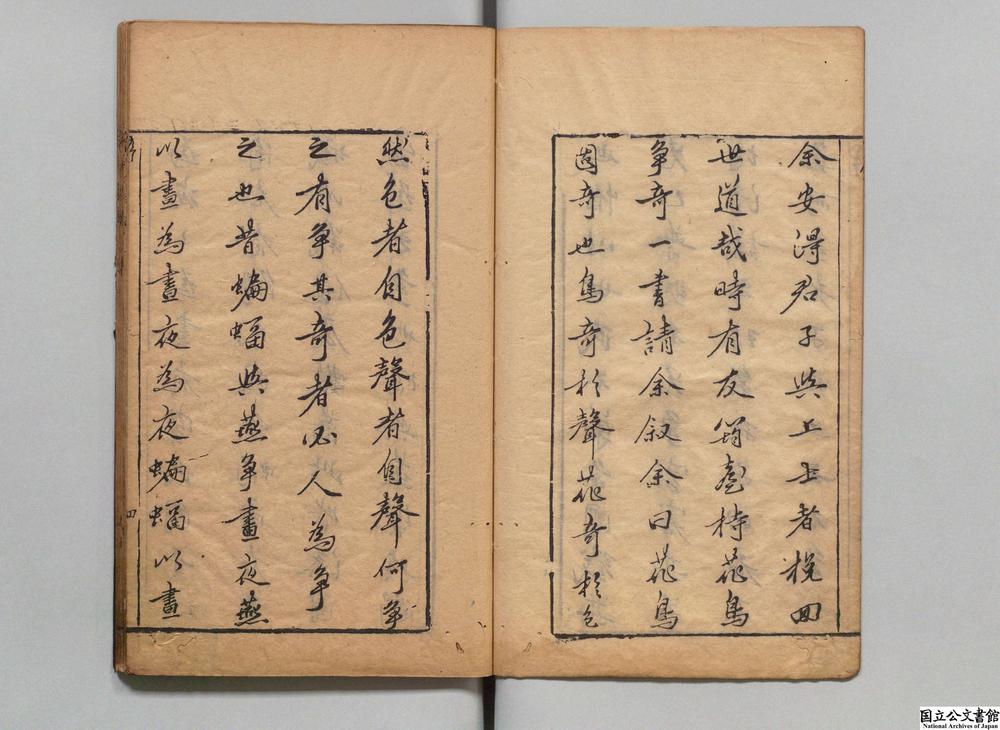 余安得君子與上上者挽回
世道哉時有友筠壑持花鳥
爭奇一書請余叙余曰花鳥
固奇也鳥奇於聲花奇於色
然色者自色聲者自聲何爭
之有爭其奇者必人為爭
之也昔蝙蝠與燕爭晝夜燕
以晝為晝夜為夜蝙蝠以晝
序
四
国立公文書館
National Archives of Japan